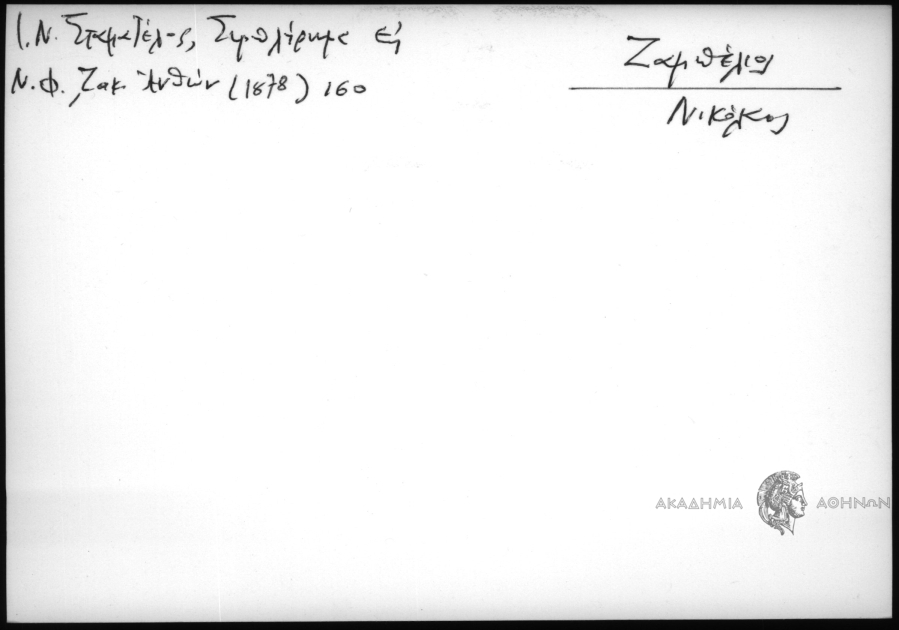 Ι. Ν. Σταματέλ-ς, Συμπλήρωμα εἰς
Ν. Φ., Ζακ. Ἀνθών (1878) 160
Ζαμπέλιος
Νικόλαος
ΑΚΑΔΗΜΙΑ ΑΘΗΝΩΝ